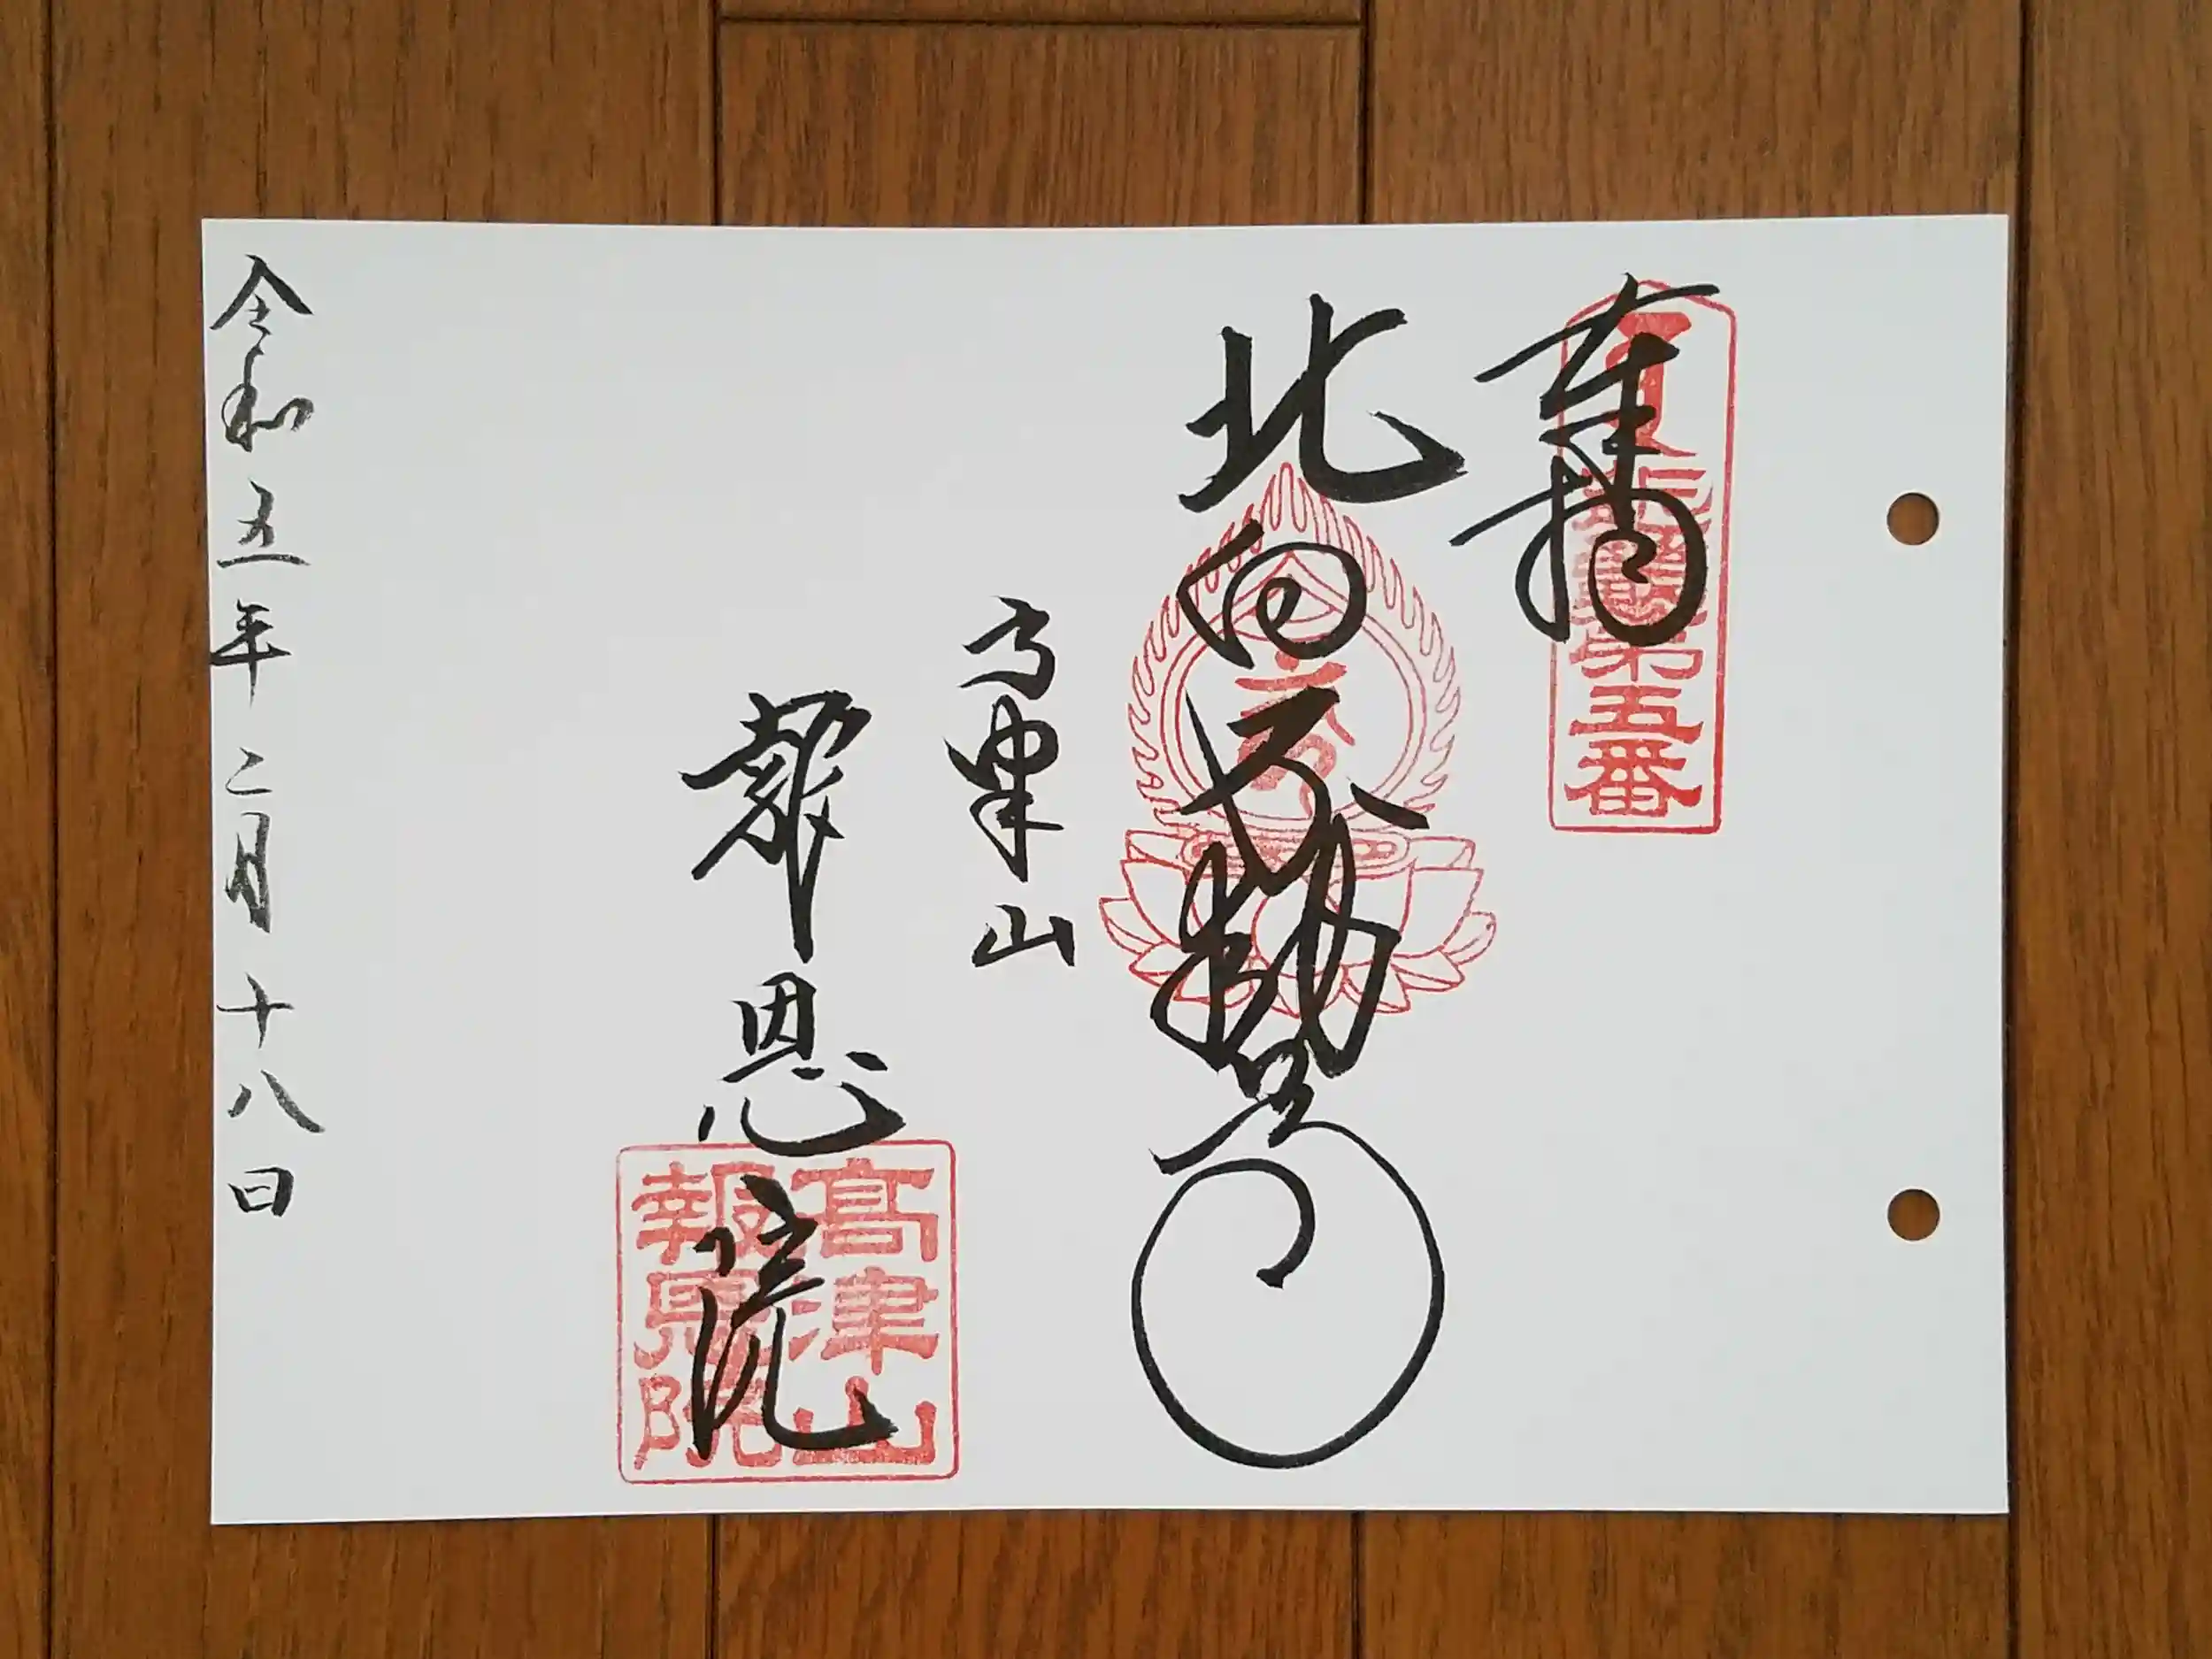 奉拝
第五番
北向不動尊
高津山
報恩院
高津山
報恩院
令和五年二月十八日